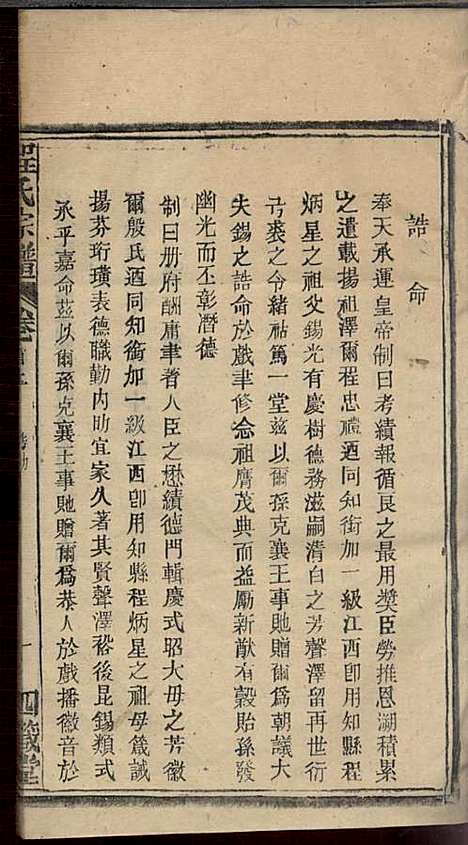 誥命
奉天承運皇帝制曰考績報循良之最用獎臣勞推恩溯積累
之遺載揚祖澤爾程忠禮迺同知銜加一級江西卽用知縣程
炳星之祖父錫光有慶樹德務滋嗣清白之芳聲澤留再世衍
弓裘之令緒祜篤一堂茲以爾孫克襄王事貤贈爾爲朝議大
夫錫之誥命於戲聿修念祖膺茂典而益勵新猷有穀貽孫發
幽光而丕彰潛德
制曰册府酬庸聿著人臣之懋績德門輯慶式昭大母之芳徽
爾殷氏迺同知銜加一級江西卽用知縣程炳星之祖母箴誡
揚芬珩璜表德職勤內助宜家久著其賢聲澤裕後昆錫類式
承乎嘉命茲以爾孫克襄王事貤贈爾爲恭人於戲播徽音於
程氏宗譜 卷首 誥勅 一